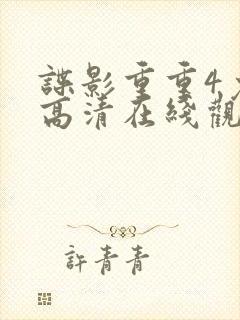 諜影重重4
高清在綫觀
許青青